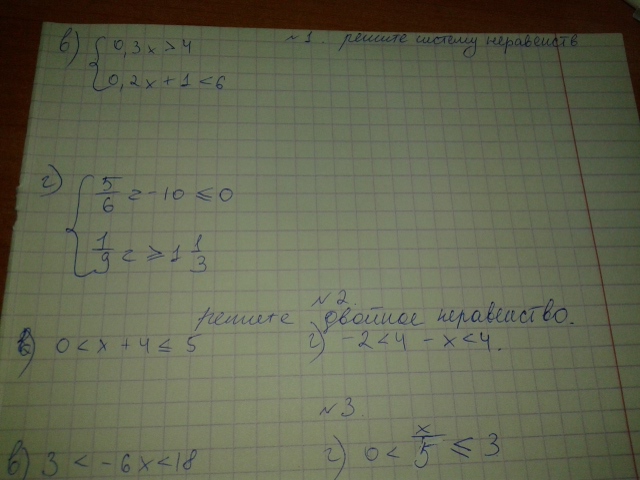 №1. решите систему неравенств
в) { 0,3x>4
0,2x+1<6
г) { 5/6 z-10 ≤0
1/9 z ≥ 1 1/3
№2.
решите двойное неравенство.
в) 0<x+4≤5 г) -2<4-x<4.
№3.
в) 3<-6x<18 г) 0< x/5 ≤3